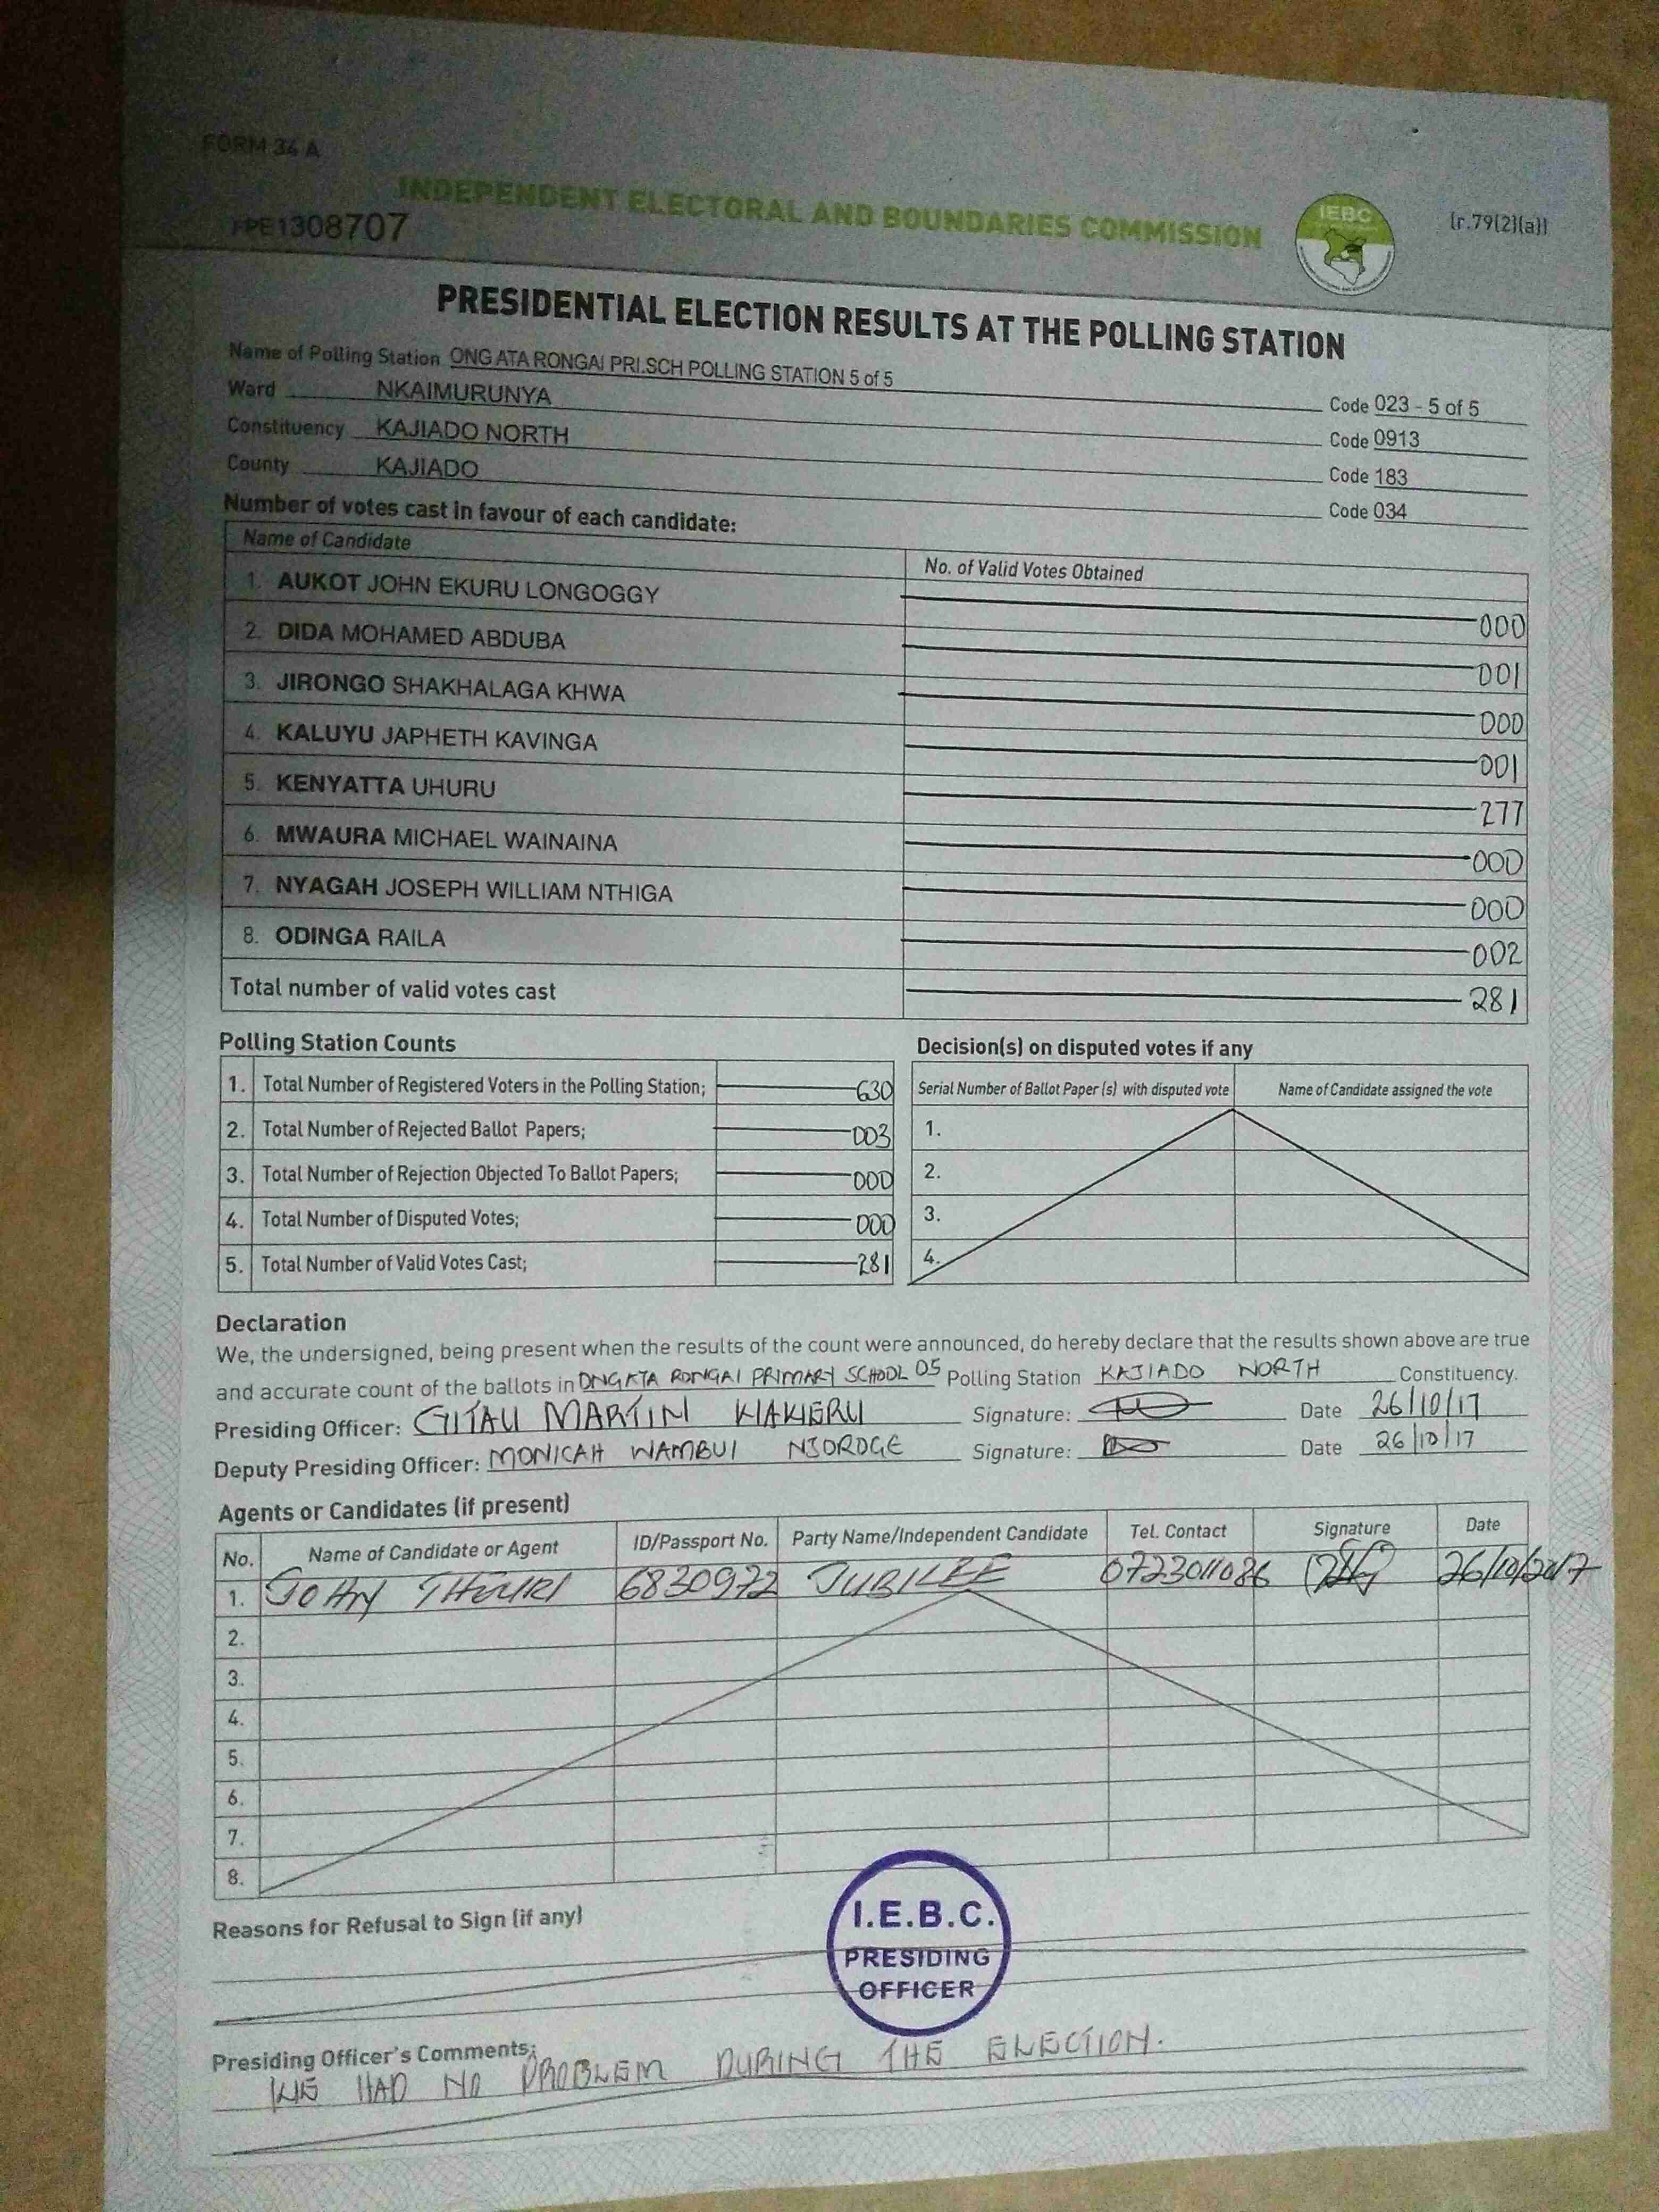 FORM 34 A
INDEPENDENT ELECTORAL AND BOUNDARIES COMMISSION
IEBC
(r.79(2)(a))
PPE1308707
PRESIDENTIAL ELECTION RESULTS AT THE POLLING STATION
Name of Polling Station ONG ATA RONGAI PRI.SCH POLLING STATION 5 of 5 Code 023 - 5 of 5
Ward NKAIMURUNYA Code 0913
Constituency KAJIADO NORTH Code 183
County KAJIADO Code 034
Number of votes cast in favour of each candidate:
Name of Candidate No. of Valid Votes Obtained
1. AUKOT JOHN EKURU LONGOGGY 000
2. DIDA MOHAMED ABDUBA 001
3. JIRONGO SHAKHALAGA KHWA 000
4. KALUYU JAPHETH KAVINGA 001
5. KENYATTA UHURU 277
6. MWAURA MICHAEL WAINAINA 000
7. NYAGAH JOSEPH WILLIAM NTHIGA 000
8. ODINGA RAILA 002
Total number of valid votes cast 281
Polling Station Counts
1. Total Number of Registered Voters in the Polling Station; 630
2. Total Number of Rejected Ballot Papers; 003
3. Total Number of Rejection Objected To Ballot Papers; 000
4. Total Number of Disputed Votes; 000
5. Total Number of Valid Votes Cast; 281
Decision(s) on disputed votes if any
Serial Number of Ballot Paper (s) with disputed vote Name of Candidate assigned the vote
1.
2.
3.
4.
Declaration
We, the undersigned, being present when the results of the count were announced, do hereby declare that the results shown above are true
and accurate count of the ballots in ONGATA RONGAI PRIMARY SCHOOL 05 Polling Station KAJIADO NORTH Constituency.
Presiding Officer: GITAU MARTIN KIAKIERU Signature: Date 26/10/17
Deputy Presiding Officer: MONICAH WAMBUI NJOROGE Signature: Date 26/10/17
Agents or Candidates (if present)
No. Name of Candidate or Agent ID/Passport No. Party Name/Independent Candidate Tel. Contact Signature Date
1. JOHN THIURI 6830972 JUBILEE 0723011086 26/10/2017
2.
3.
4.
5.
6.
7.
8.
Reasons for Refusal to Sign (if any)
I.E.B.C.
PRESIDING
OFFICER
Presiding Officer's Comments:
WE HAD NO PROBLEM DURING THE ELECTION.